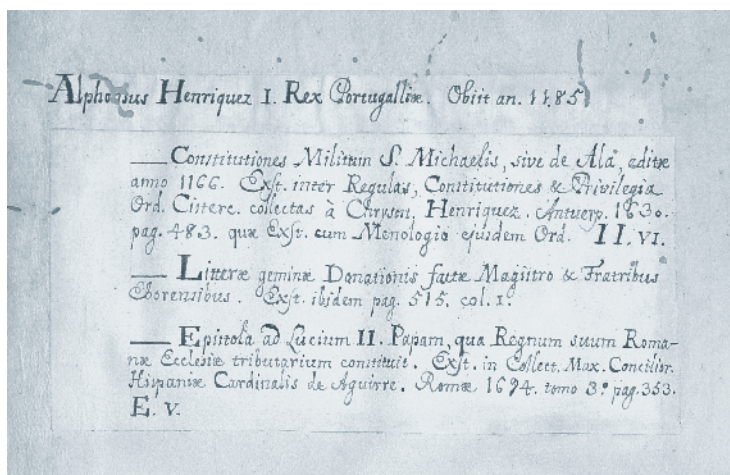 Alphonsus Henriquez I. Rex Portugalliæ. Obiit an. 1185
—— Constitutiones Militum S. Michaelis, sive de Alâ, editæ
anno 1166. Exst. inter Regulas, Constitutiones & Privilegia
Ord. Cisterc. collectas à Chrysost. Henriquez. Antuerp. 1630.
pag. 483. quæ Exst. cum Menologio ejusdem Ord. II. VI.
—— Litteræ geminæ Donationis factæ Magistro & Fratribus
Eborensibus. Exst. ibidem pag. 515. col. 1.
—— Epistola ad Lucium II. Papam, qua Regnum suum Roma-
næ Ecclesiæ tributarium constituit. Exst. in Collect. Max. Concilior.
Hispaniæ Cardinalis de Aguirre. Romæ 1694. tomo 3.º pag. 353.
E. V.